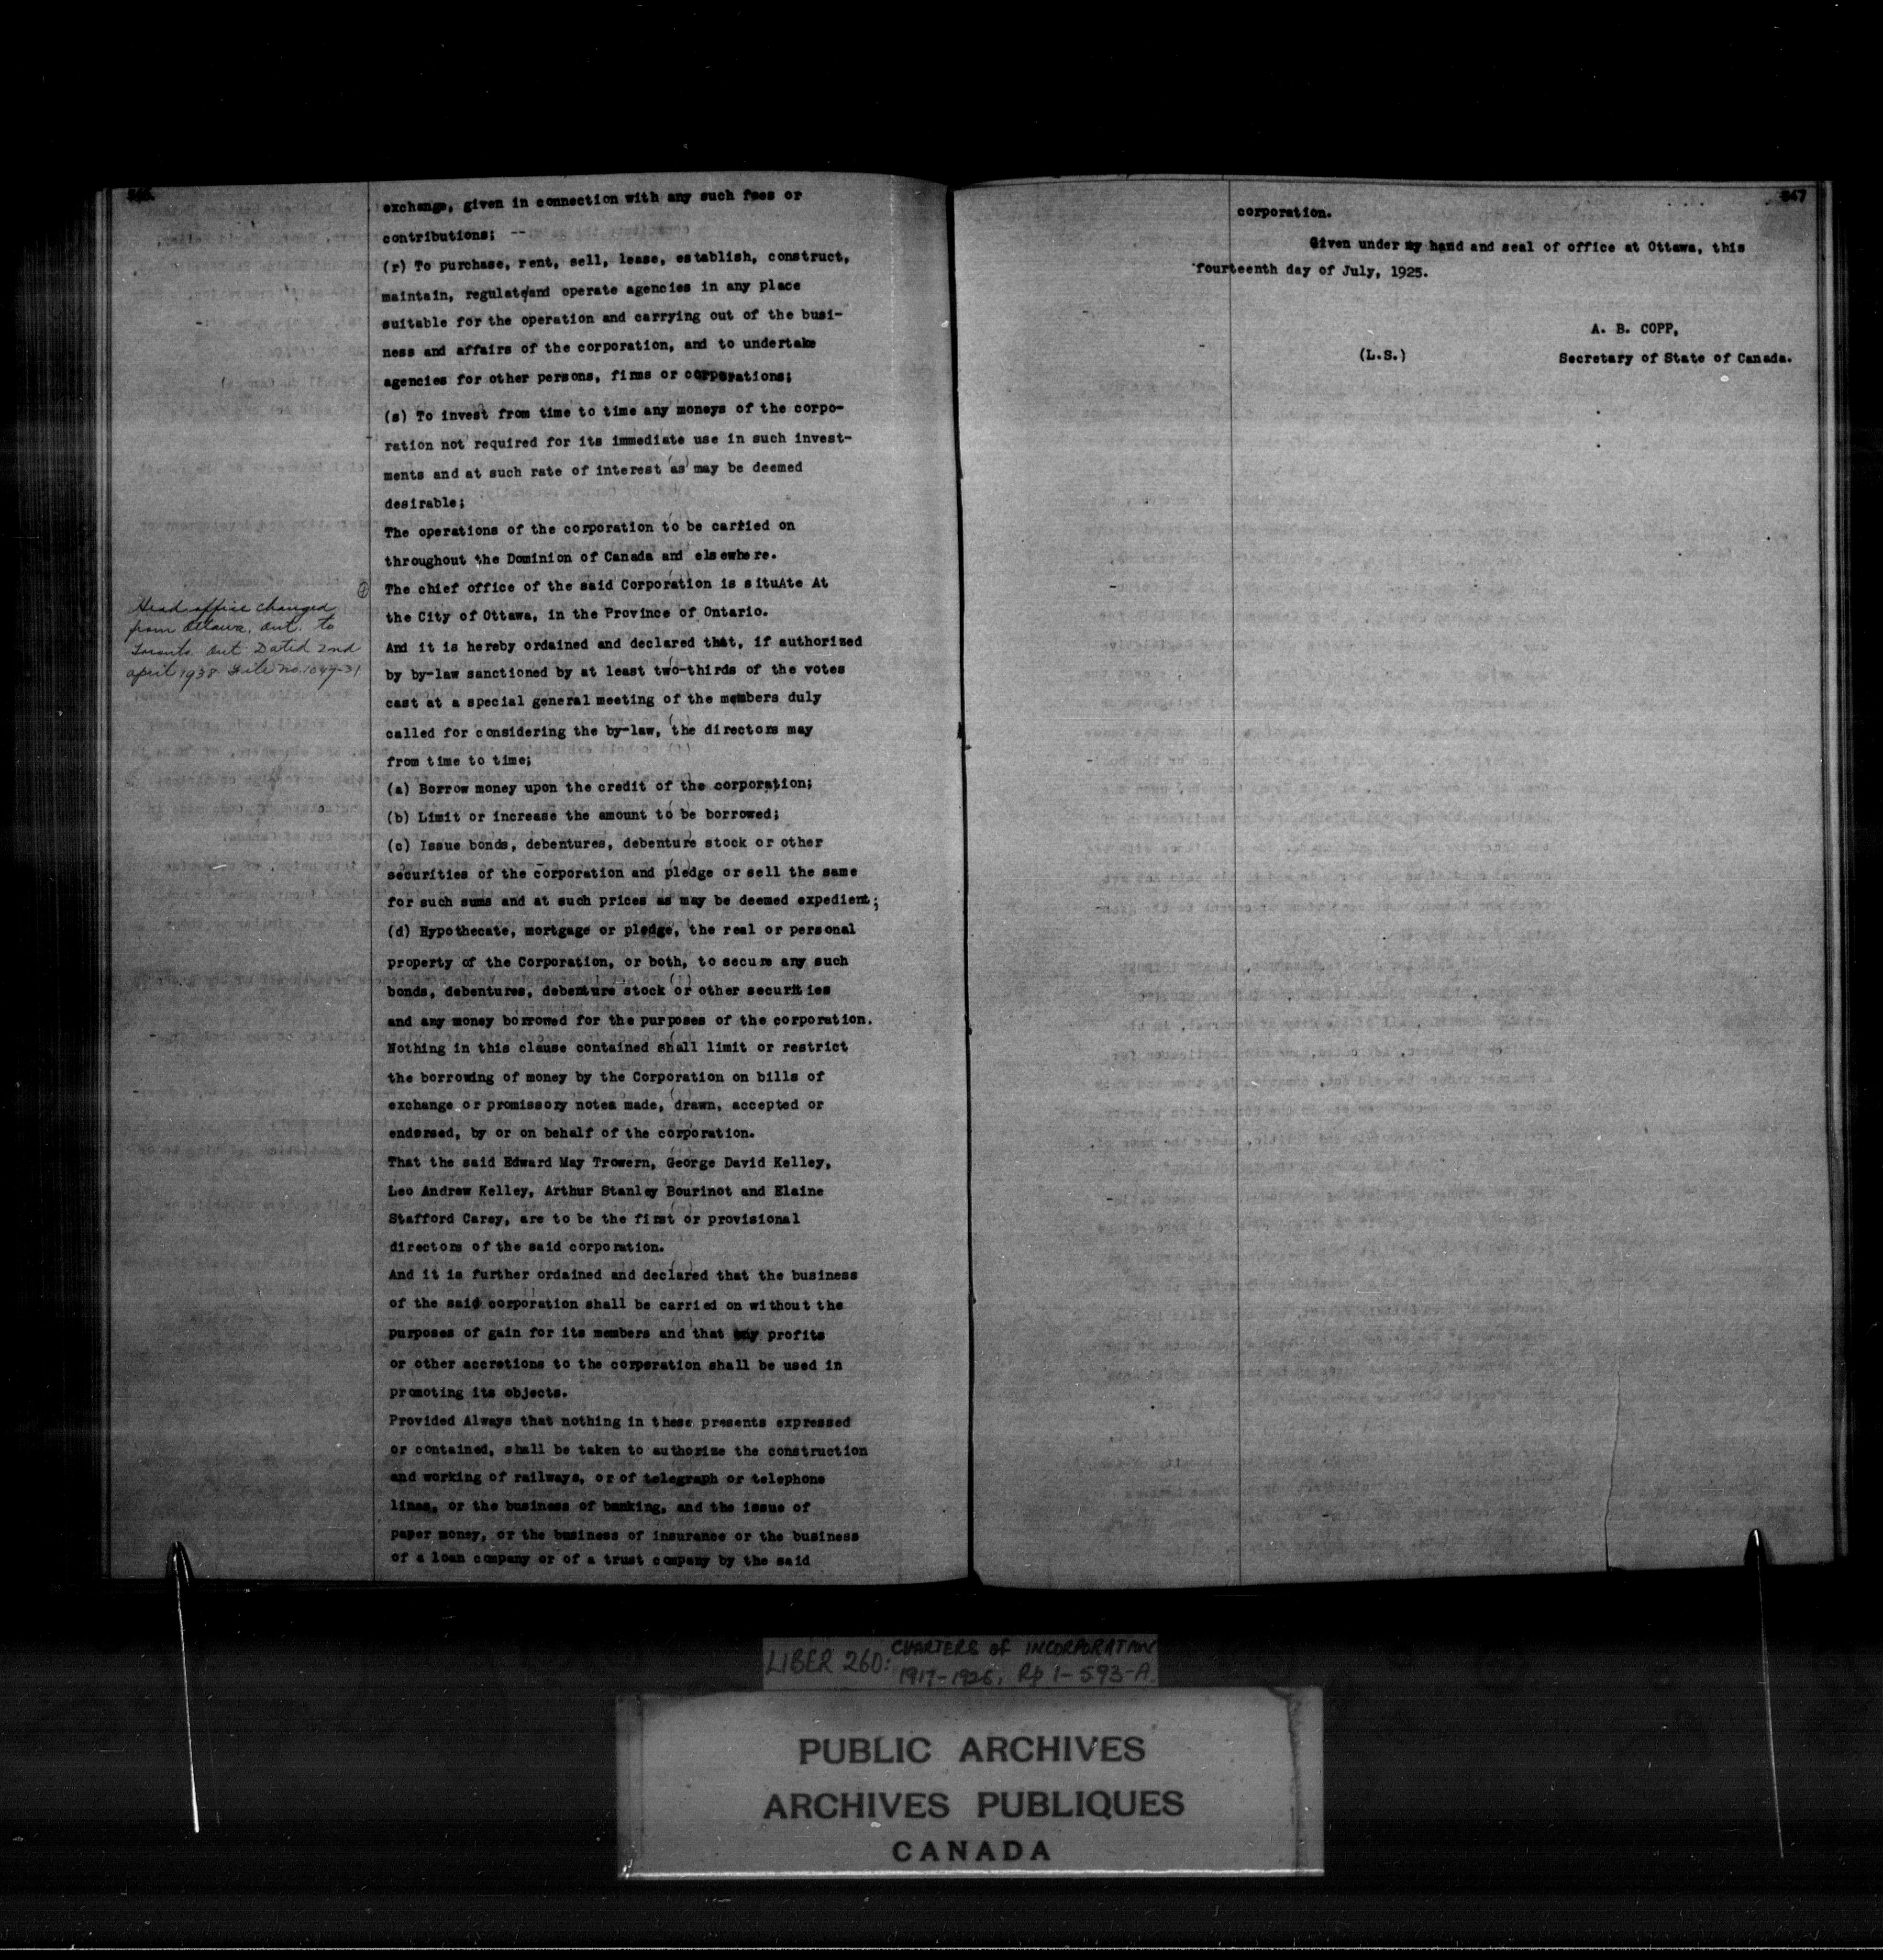 exchange, given in connection with any such fees or
contributions; --
(r) To purchase, rent, sell, lease, establish, construct,
maintain, regulate/and operate agencies in any place
suitable for the operation and carrying out of the busi-
ness and affairs of the corporation, and to undertake
agencies for other persons, firms or corporations;
(s) To invest from time to time any moneys of the corpo-
ration not required for its immediate use in such invest-
ments and at such rate of interest as may be deemed
desirable;
The operations of the corporation to be carried on
throughout the Dominion of Canada and elsewhere.
The chief office of the said Corporation is situAte At
the City of Ottawa, in the Province of Ontario.
And it is hereby ordained and declared that, if authorized
by by-law sanctioned by at least two-thirds of the votes
cast at a special general meeting of the members duly
called for considering the by-law, the directors may
from time to time;
(a) Borrow money upon the credit of the corporation;
(b) Limit or increase the amount to be borrowed;
(c) Issue bonds, debentures, debenture stock or other
securities of the corporation and pledge or sell the same
for such sums and at such prices as may be deemed expedient;
(d) Hypothecate, mortgage or pledge, the real or personal
property of the Corporation, or both, to secure any such
bonds, debentures, debenture stock or other securities
and any money borrowed for the purposes of the corporation.
Nothing in this clause contained shall limit or restrict
the borrowing of money by the Corporation on bills of
exchange or promissory notes made, drawn, accepted or
endorsed, by or on behalf of the corporation.
That the said Edward May Trowern, George David Kelley,
Leo Andrew Kelley, Arthur Stanley Bourinot and Elaine
Stafford Carey, are to be the first or provisional
directors of the said corporation.
And it is further ordained and declared that the business
of the said corporation shall be carried on without the
purposes of gain for its members and that any profits
or other accretions to the corporation shall be used in
promoting its objects.
Provided Always that nothing in these presents expressed
or contained, shall be taken to authorize the construction
and working of railways, or of telegraph or telephone
lines, or the business of banking, and the issue of
paper money, or the business of insurance or the business
of a loan company or of a trust company by the said
Head office changed
from Ottawa, Ont. to
Toronto. Ont. Dated 2nd
april 1938. File no. 1047-31
347
corporation.
Given under my hand and seal of office at Ottawa, this
fourteenth day of July, 1925.
A. B. COPP,
(L.S.) Secretary of State of Canada.
LIBER 260: CHARTERS of INCORPORATION
1917-1926, Pp 1-593-A.
PUBLIC ARCHIVES
ARCHIVES PUBLIQUES
CANADA